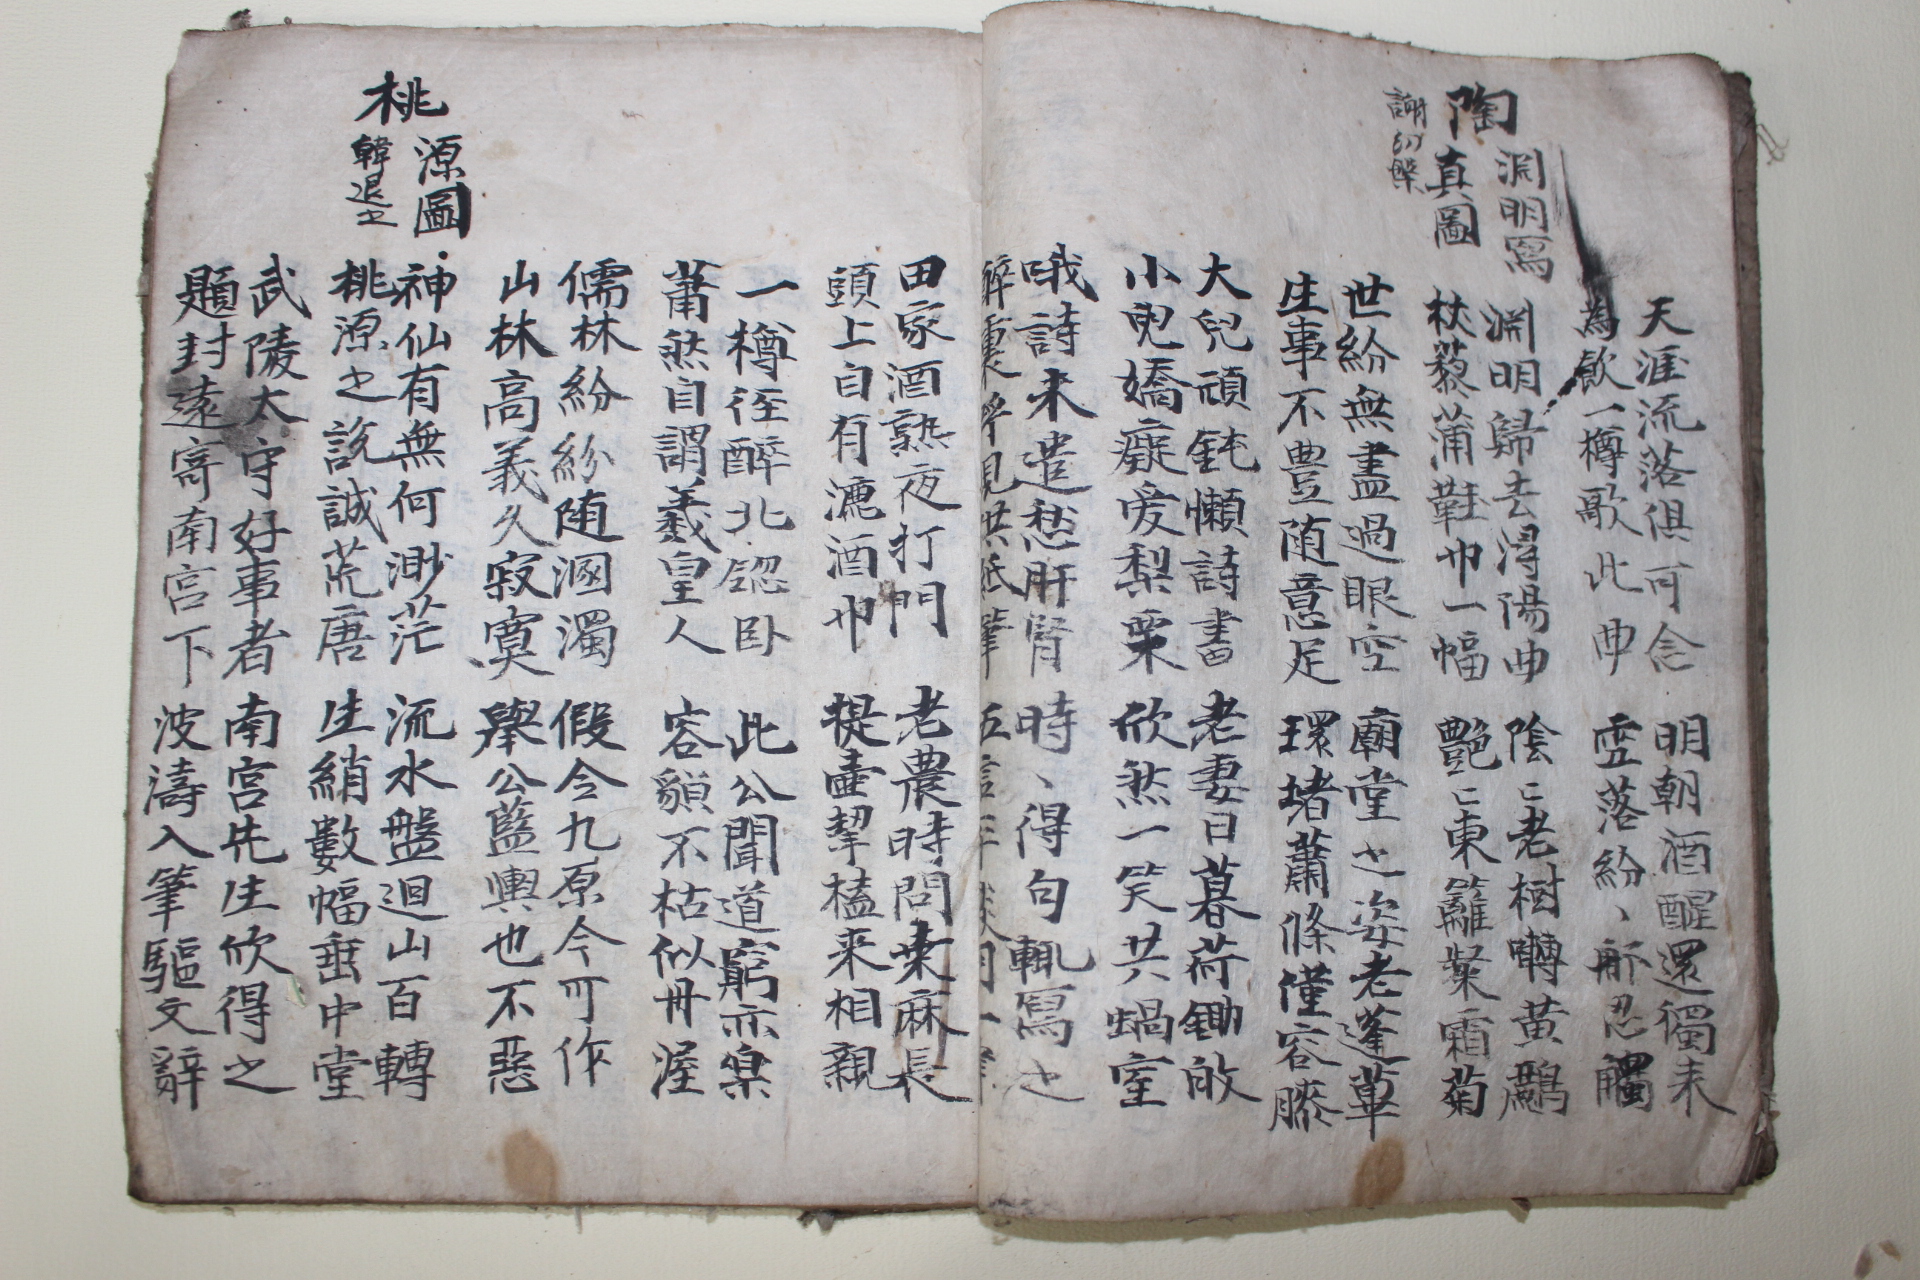 天涯流落俱可念
為飮一樽歌此曲
明朝酒醒還獨来
雪落紛、那忍觸
陶淵明寫真圖
謝幼槃
淵明歸去潯陽曲
杖藜蒲鞋巾一幅
陰〻老樹囀黃鸝
艶〻東籬粲霜菊
世紛無盡過眼空
生事不豊随意足
廟堂之姿老蓬蓽
環堵蕭條僅容膝
大兒頑鈍懶詩書
小兒嬌癡爱梨栗
老妻日暮荷鋤㱕
欣然一笑共蝸室
哦詩未遣愁肝腎
醉裏呼見供紙筆
時、得句輒寫之
五言平淡用一律
田家酒熟夜打門
頭上自有漉酒巾
老農時問桒麻長
提壷挈榼来相親
一樽径醉北窓卧
蕭然自謂羲皇人
此公聞道窮亦樂
容貌不枯似丹渥
儒林紛紛随溷濁
山林高義久寂寞
假令九原今可作
擧公藍輿也不惡
桃源圖
韓退之
神仙有無何渺茫
桃源之說誠荒唐
流水盤迴山百轉
生綃數幅垂中堂
武陵太守好事者
題封遠寄南宮下
南宮先生欣得之
波濤入筆驅文辭